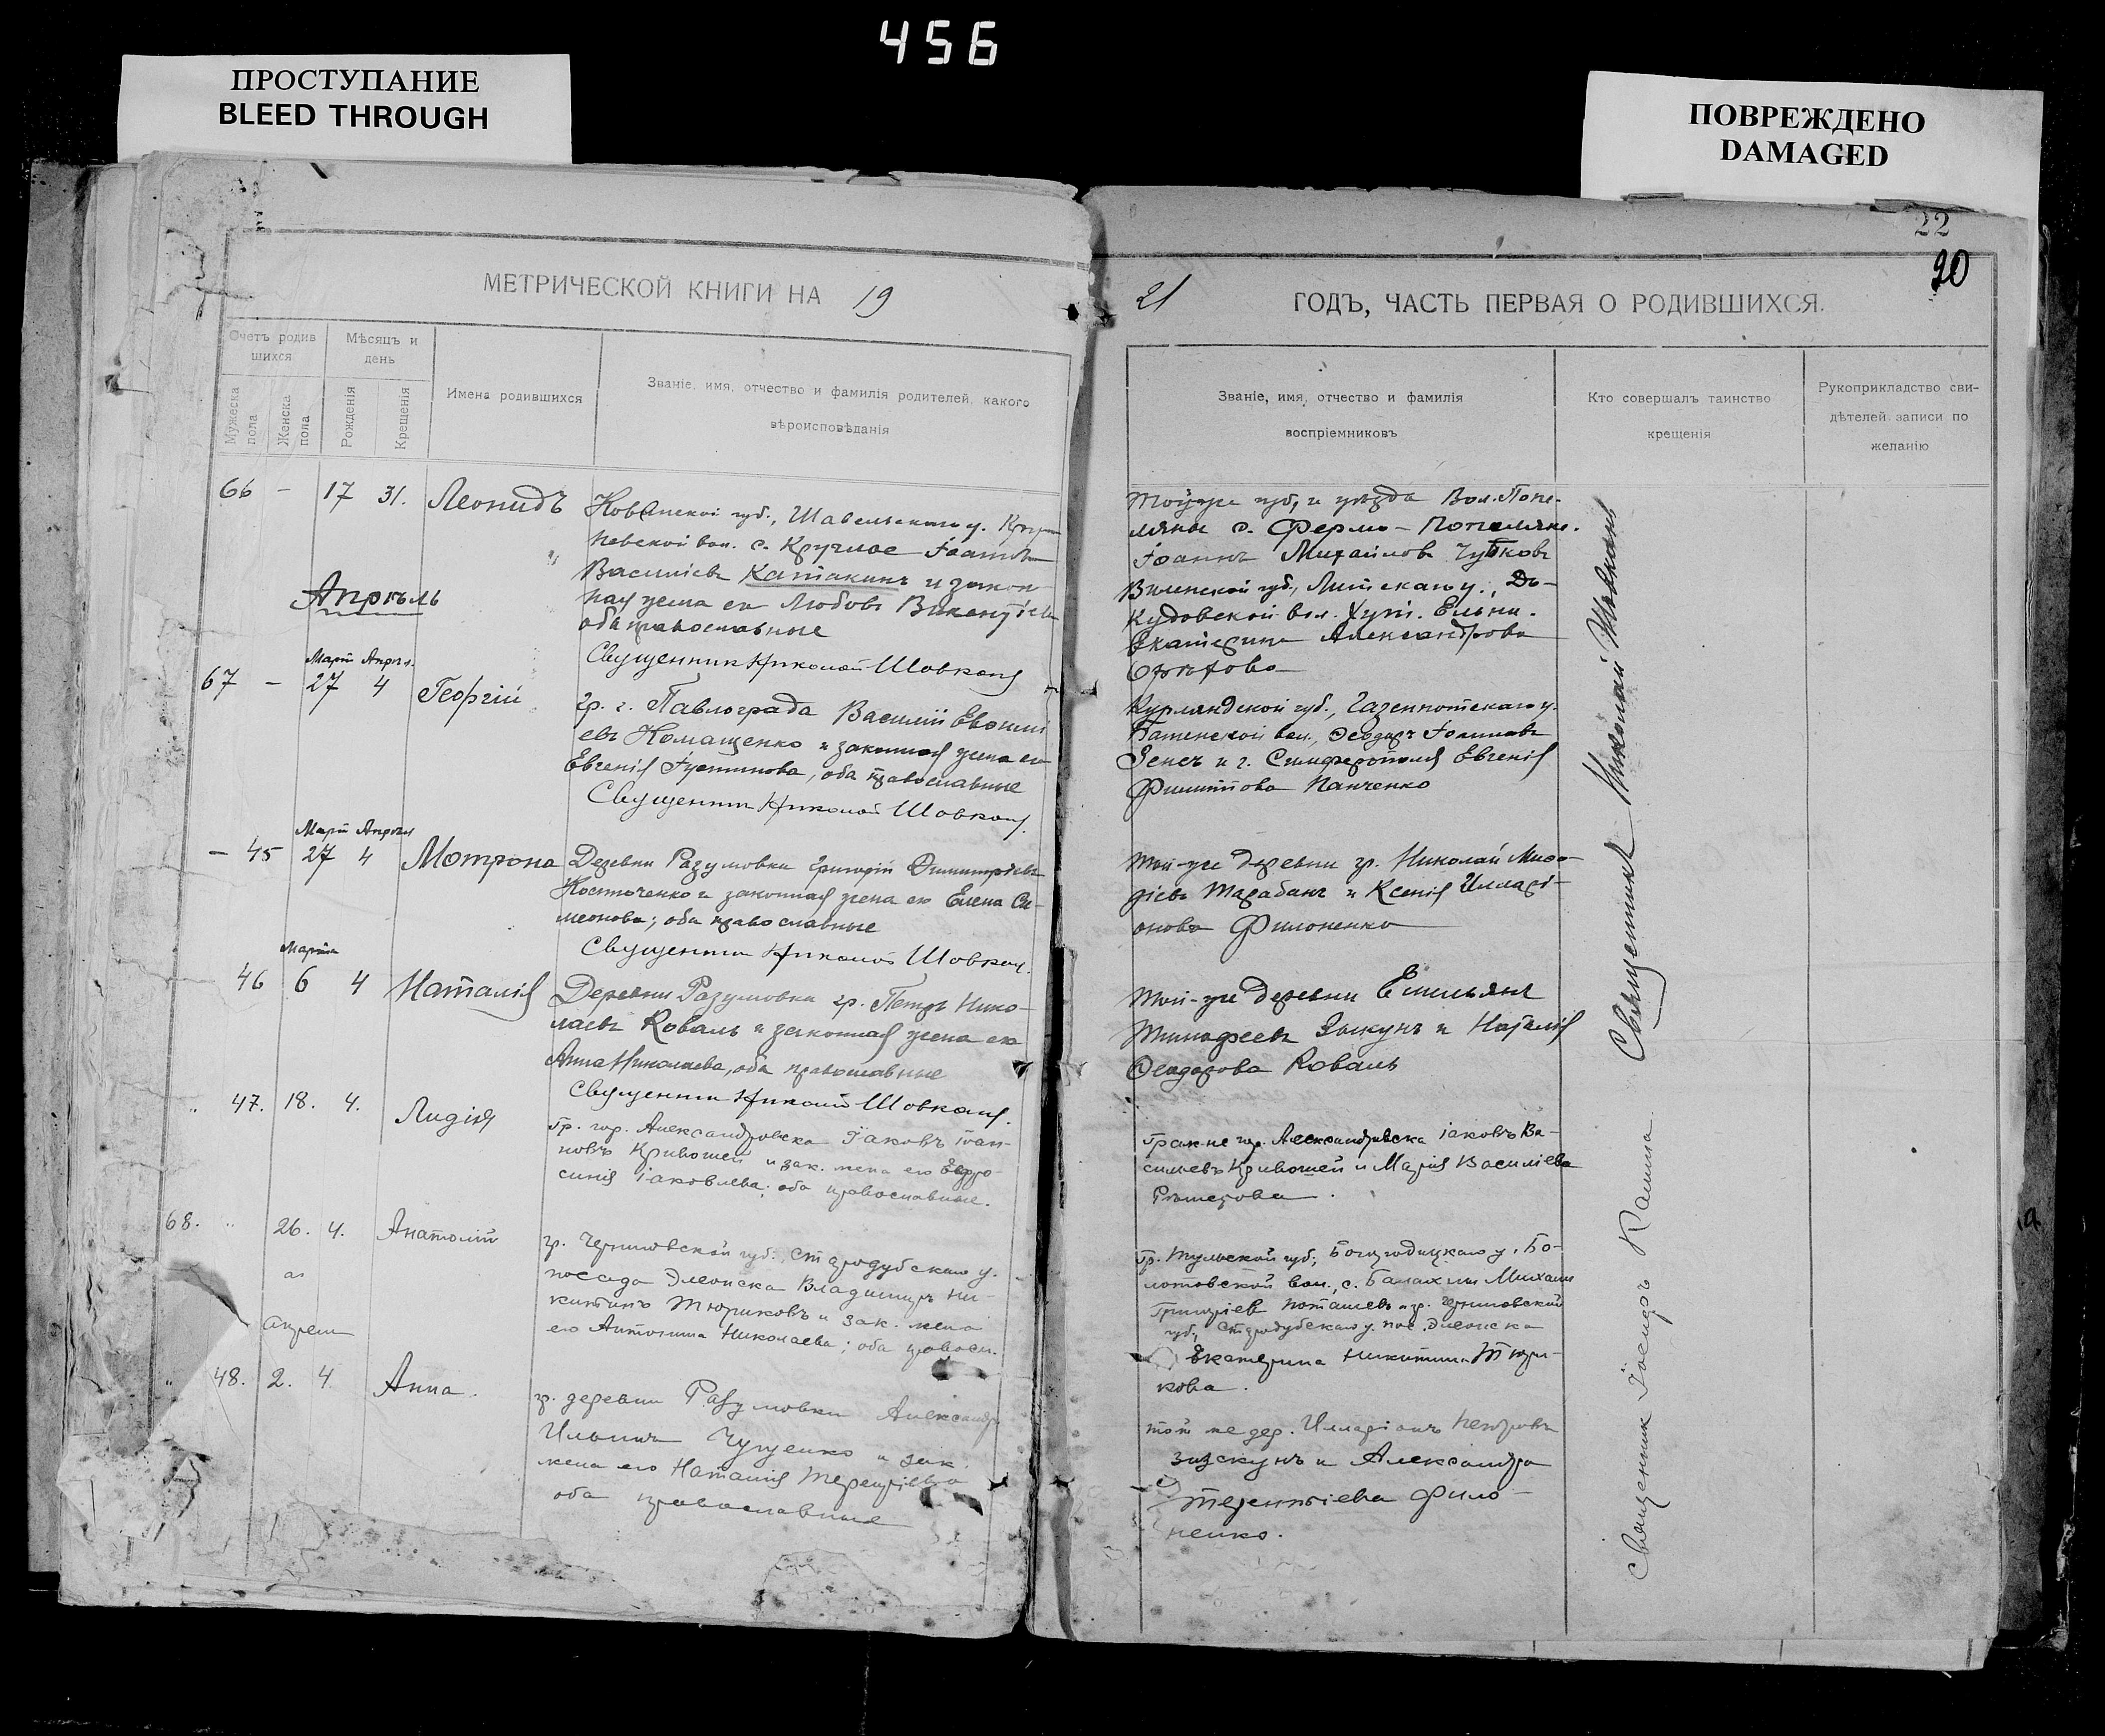 456
ПРОСТУПАНИЕ
BLEED THROUGH
ПОВРЕЖДЕНО
DAMAGED
22
20
МЕТРИЧЕСКОЙ КНИГИ НА 19
21 ГОДЪ, ЧАСТЬ ПЕРВАЯ О РОДИВШИХСЯ.
Счетъ родив
шихся
Мужеска пола
Женска пола
Мѣсяцъ и
день
Рожденія
Крещенія
Имена родившихся
Званіе, имя, отчество и фамилія родителей, какого
вѣроисповѣданія
Званіе, имя, отчество и фамилія
воспріемниковъ
Кто совершалъ таинство
крещенія
Рукоприкладство сви-
дѣтелей записи по
желанію
66 - 17 31. Леонидъ
Ковенской губ., Шавельскаго у.
вол. с. Круглое Іоаннъ
Василіевъ Катакинъ и закон
ная жена его Любовь Викентіева
оба православные
Священникъ Николай Шовкопя
Тойже губ. и уѣзда Вол. Попе-
ляны с. Фермо-Попеляне.
Іоаннъ Михаиловъ Чубковъ
Виленской губ., Лидскаго у., До-
кудовской вол. Хут. Ельни.
Екатерина Александрова
Апрѣль
Мартъ Апрѣл.
67 - 27 4 Георгій
гр. г. Павлограда Василій Евфимі
евъ Комащенко и законная жена его
Евгенія Іустинова, оба православные
Священникъ Николай Шовкопя.
Курляндской губ., Газенпотскаго у.
вол., Ѳеодоръ Іоанновъ
Зенсъ и г. Симферополя Евгенія
Филиппова Панченко
Мартъ Апрѣля
- 45 27 4 Мотрона
Деревни Разумовки Григорій Димитріевъ
Костюченко и законная жена его Елена Си-
меонова; оба православные
Священникъ Николай Шовкоп.
Той-же деревни гр. Николай
Тарабанъ и Ксенія Илларі-
онова Филоненко
Марта
46 6 4 Наталія
Деревни Разумовки гр. Петръ Нико-
лаевъ Коваль и законная жена его
Анна Николаева, оба православные
Священникъ Николай Шовкопя.
Той-же деревни Емельянъ
Тимофеевъ Зыкунъ и Наталія
Ѳеодорова Коваль
" 47. 18. 4. Лидія
Гр. гор. Александровска Іаковъ Іоан-
новъ Кривошей и зак. жена его Евфро-
синія Іаковлева; оба православные.
Гражне гор. Александровска Іаковъ Ва-
сильевъ Кривошей и Марія Василіева
68. " 26. 4. Анатолій
гр. Черниговской губ., Стародубскаго у.
посада Элеонска Владимиръ Ни-
китинъ Тюриковъ и зак. жена
его Антонина Николаева; оба правосл.
гр. Тульской губ., Богородицкаго у., Бо-
лотовской вол., с. Михаилъ
Григоріевъ Поташевъ и гр. Черниговской
губ., Стародубскаго у. пос. Элеонска
Екатерина Никитина Тюри-
кова.
апреля
" 48. 2. 4 Анна.
гр. деревни Разумовки Александръ
Ильинъ и зак.
жена его Наталія Терентіева
оба православные
той же дер. Илларіонъ Петровъ
и Александра
Терентіева Фило-
ненко.
Священникъ Николай Шовкопя
Священник Іосифъ